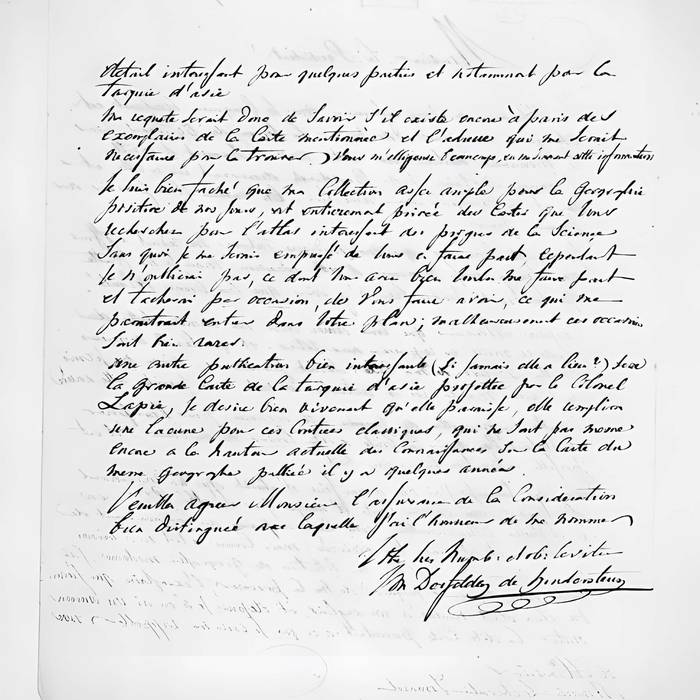 detail interessant pour quelques parties et notamment pour la
turquie d'asie
Ma requete serait donc de savoir s'il existe encore à paris des
exemplaires de la Carte mentionnée et l'adresse qui me serait
necessaire pour la trouver, Vous m'obligerez beaucoup, en me donnant cette information
Je suis bien faché que ma Collection assez ample pour la Geographie
positive de nos jours, est entierement privée des Cartes que Vous
recherchez pour l'atlas interessant des progres de la Science
Sans quoi je me serais empressé de Vous en faire part, cependant
Je n'oublierai pas, ce dont Vous avez bien voulu me faire part
et tacherai par occasion, de Vous faire avoir, ce qui me
paroitroit entrer dans Votre plan; malheureusement ces occasions
sont bien rares.
Une autre publication bien interessante (si jamais elle a lieu?) sera
la grande Carte de la turquie d'asie projettée par le Colonel
Lapie, Je desire bien vivement qu'elle paroisse, elle remplira
une lacune pour ces Contrées classiques, qui ne sont pas meme
encore a la hauteur actuelle des Connaissances sur la Carte du
meme geographe publiée il y a quelques années
Veuillez agreer Monsieur l'assurance de la Consideration
bien distinguée avec laquelle j'ai l'honneur de me nommer
Votre tres humble et ob. Serviteur
de Hinderstein